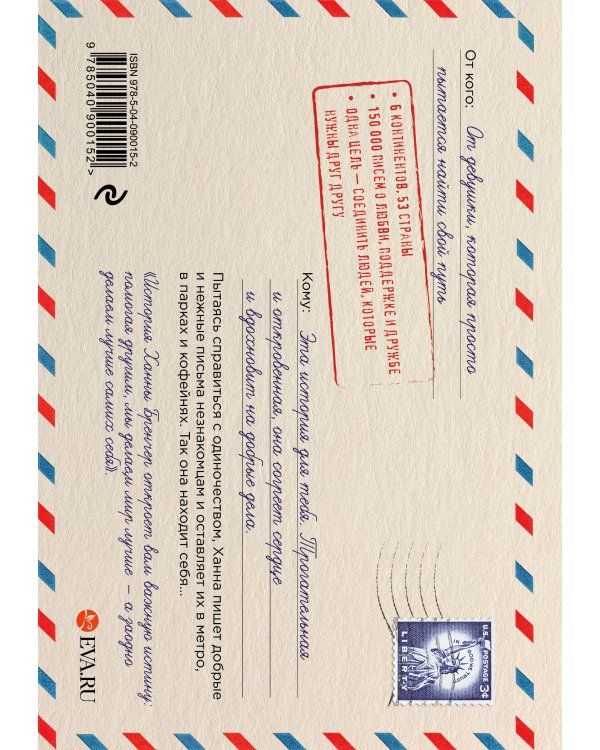 От кого: От девушки, которая просто
пытается найти свой путь
• 6 КОНТИНЕНТОВ, 53 СТРАНЫ
• 150 000 ПИСЕМ О ЛЮБВИ, ПОДДЕРЖКЕ И ДРУЖБЕ
• ОДНА ЦЕЛЬ — СОЕДИНИТЬ ЛЮДЕЙ, КОТОРЫЕ
НУЖНЫ ДРУГ ДРУГУ
U.S. POSTAGE 3¢
IN GOD WE TRUST
LIBERTY
Кому: Эта история для тебя. Трогательная
и откровенная, она согреет сердце
и вдохновит на добрые дела.
Пытаясь справиться с одиночеством, Ханна пишет добрые
и нежные письма незнакомцам и оставляет их в метро,
в парках и кофейнях. Так она находит себя...
«История Ханны Бренчер откроет вам важную истину:
помогая другим, мы делаем мир лучше — а заодно
делаем лучше самих себя».
ISBN 978-5-04-090015-2
9 785040 900152 >
EVA.RU